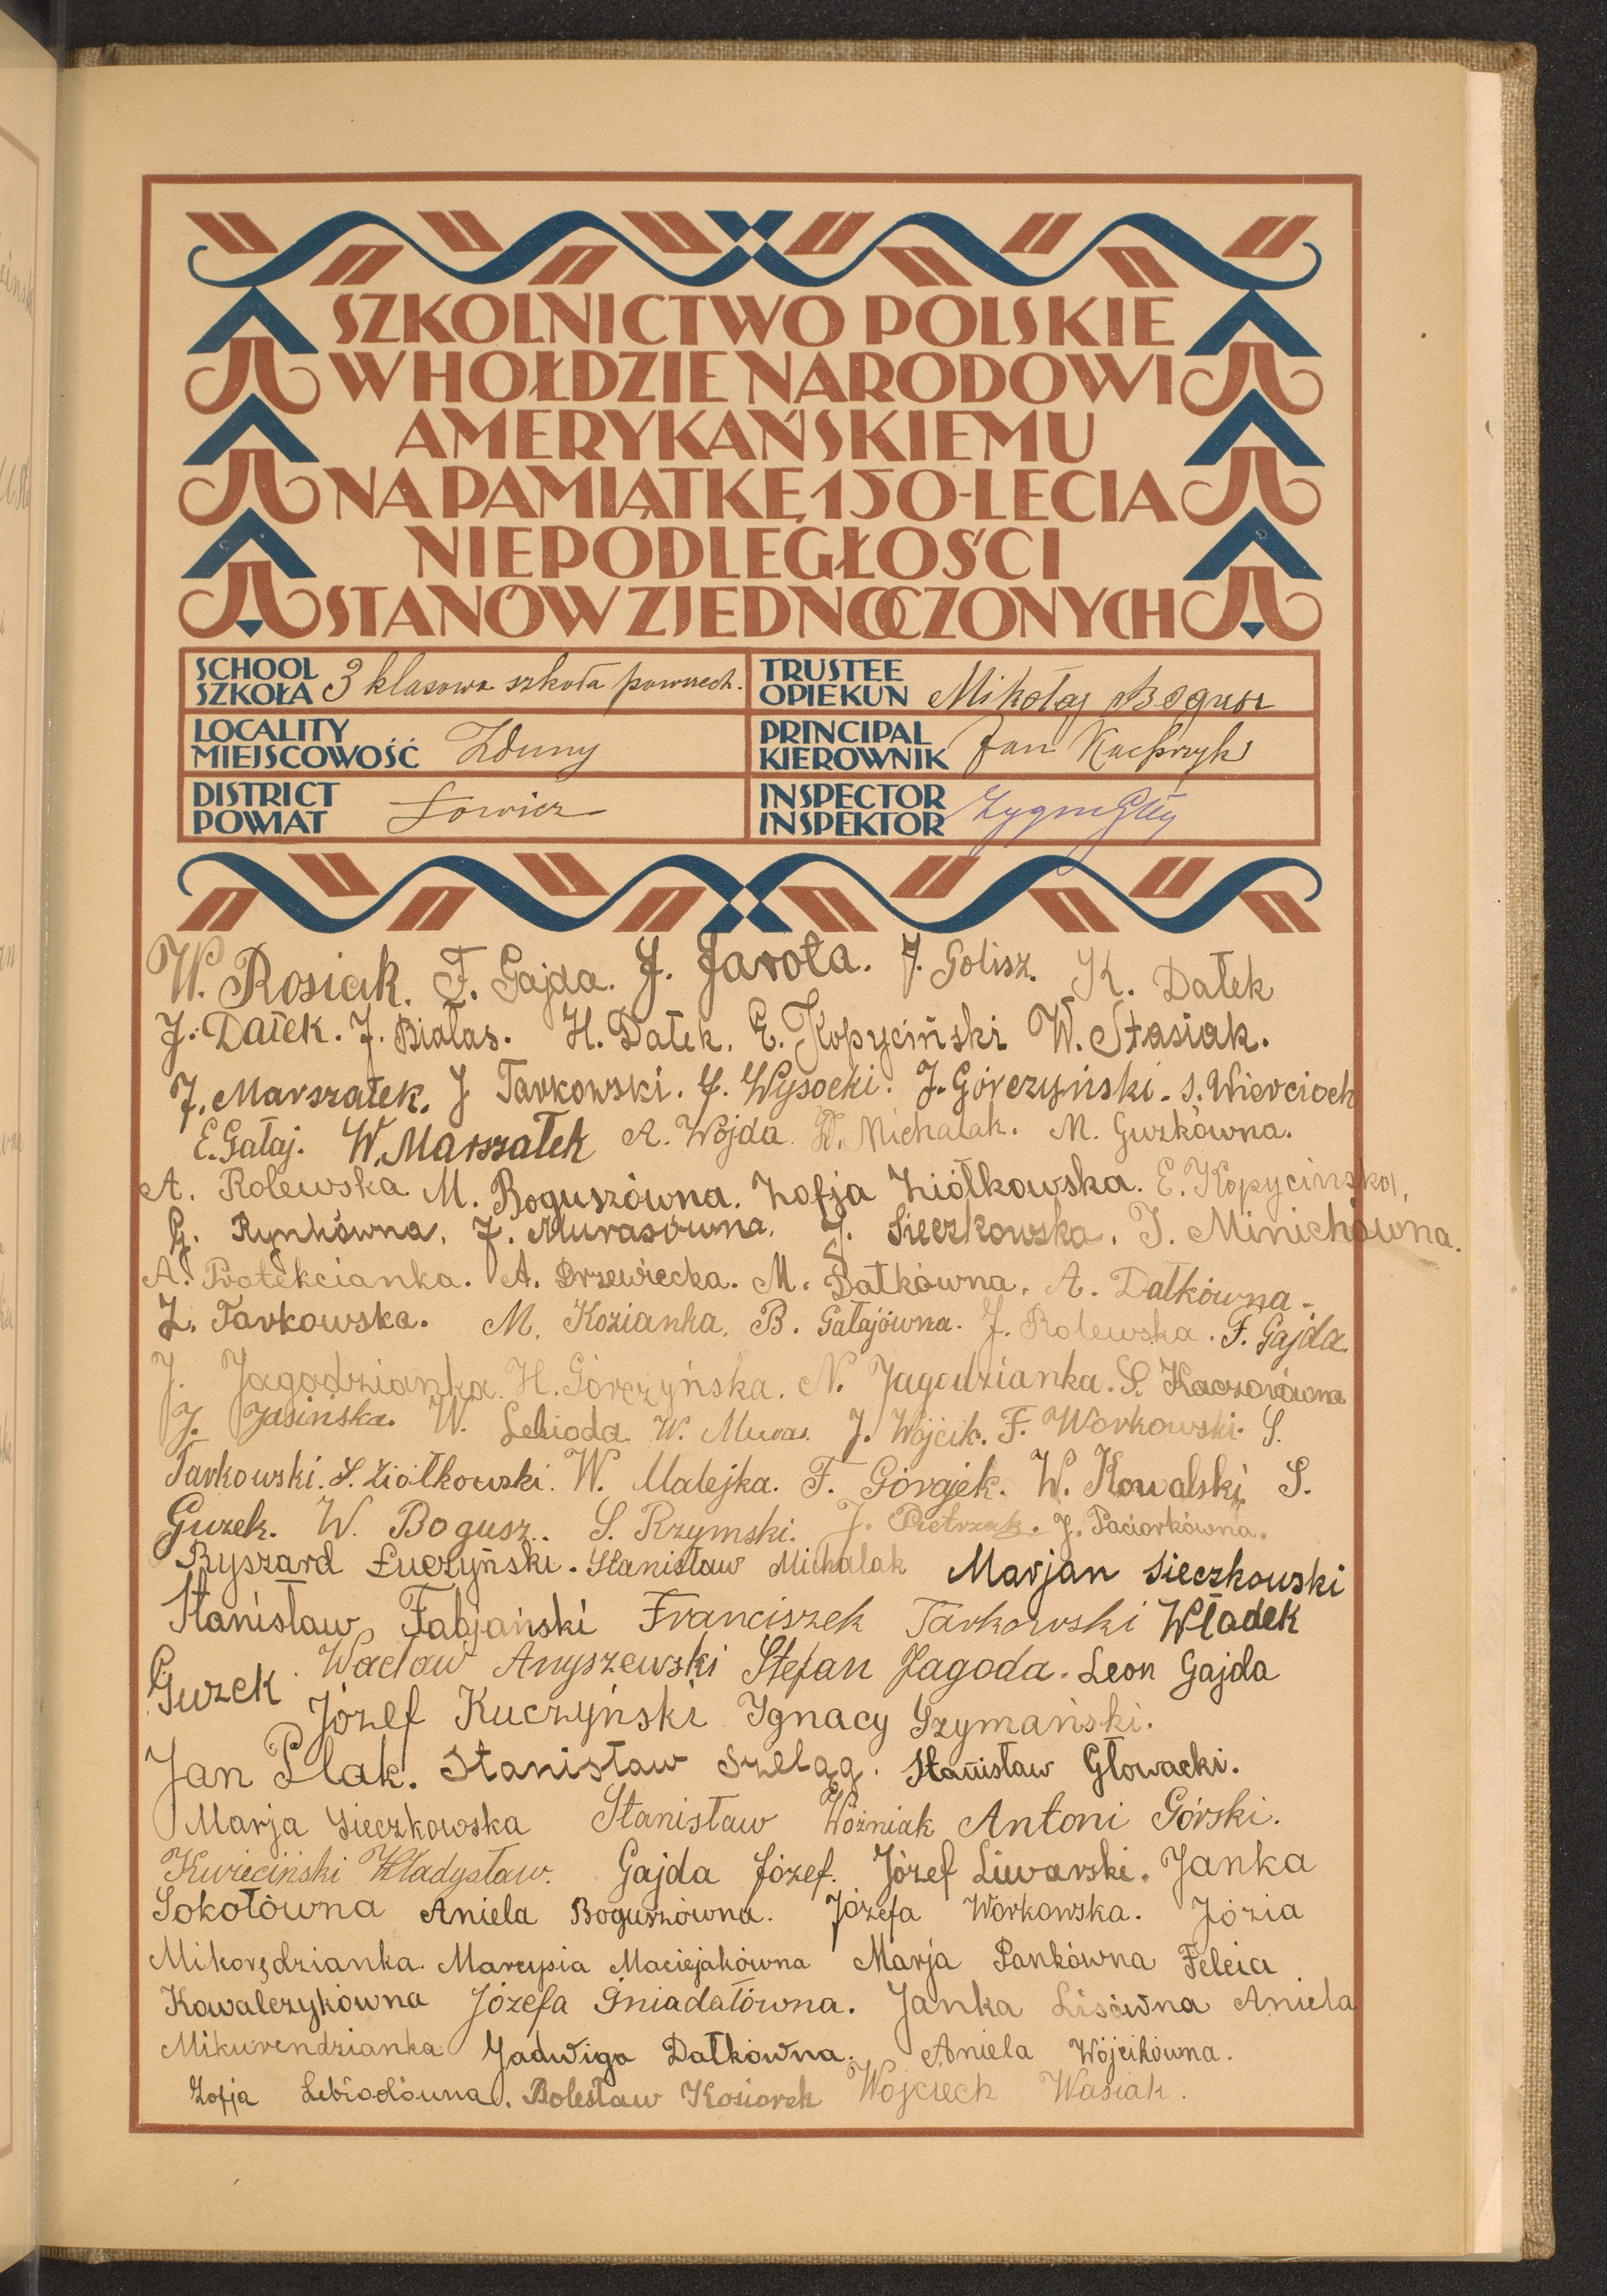 SZKOLNICTWO POLSKIE
W HOŁDZIE NARODOWI
AMERYKAŃSKIEMU
NA PAMIĄTKĘ 150-LECIA
NIEPODLEGŁOŚCI
STANÓW ZJEDNOCZONYCH
SCHOOL
SZKOŁA 3 klasowa szkoła powszech.
TRUSTEE
OPIEKUN Mikołaj Bogusz
LOCALITY
MIEJSCOWOŚĆ Zduny
PRINCIPAL
KIEROWNIK Jan Kacprzyk
DISTRICT
POWIAT Łowicz
INSPECTOR
INSPEKTOR
W. Rosiak. F. Gajda. J. Jarota. J. Golisz. K. Dałek
J. Dałek. J. Białas. H. Dałek. E. Kopyciński W. Stasiak.
J. Marszałek. J Tarkowski. J. Wysocki. J. Górczyński. S. Wiercioch
E. Gałaj. W. Marszałek A. Wojda. W. Michalak. M. Guzkówna.
A. Rolewska M. Boguszówna. Zofja Ziółkowska. E. Kopycinska,
G. Rynkówna, J. Murasówna. J. Sieczkowska. J. Minichówna.
A. Protekcianka. A. Drzewiecka. M. Dałkówna. A. Dałkówna.
Z. Tarkowska. M. Kozianka, B. Gałajówna. J. Rolewska. F. Gajda.
J. Jagodzianka. H. Górczyńska. N. Jagodzianka. S. Kaczorówna
J. Jasińska. W. Lebioda W. Muras. J. Wójcik. F. Workowski. S.
Tarkowski. S. Ziółkowski. W. Matejka. F. Górajek. W. Kowalski, S.
Guzek. W. Bogusz. S. Rzymski. J. Pietrzak. J. Paciorkówna.
Ryszard Łuczyński. Stanisław Michalak Marjan Sieczkowski
Stanisław Fabjański Franciszek Tarkowski Władek
Guzek. Wacław Anyszewski Stefan Jagoda. Leon Gajda
Józef Kuczyński Ignacy Szymański.
Jan Plak. Stanisław Szeląg. Stanisław Głowacki.
Marja Sieczkowska Stanisław Woźniak Antoni Górski.
Kwieciński Władysław. Gajda Józef. Józef Liwarski. Janka
Sokołówna Aniela Boguszówna. Józefa Workowska. Józia
Mikorędzianka. Marcysia Maciejakówna Marja Pankówna Felcia
Kowalczykówna Józefa Śniadałówna. Janka Lisówna Aniela
Mikurendzianka Jadwiga Dałkówna. Aniela Wójcikówna.
Zofja Lebiodówna. Bolesław Kosiorek Wojciech Wasiak.